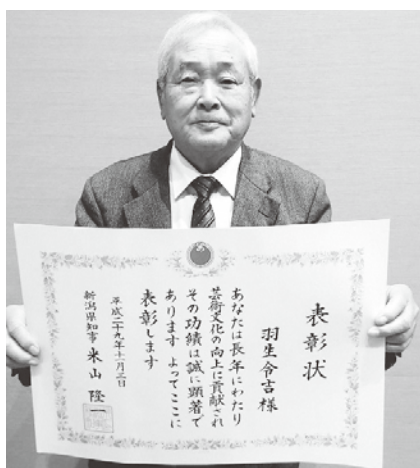 表彰状
羽生令吉様
あなたは長年にわたり
芸術文化の向上に貢献され
その功績は誠に顕著で
あります よってここに
表彰します
平成二十九年十一月三日
新潟県知事 米山隆一